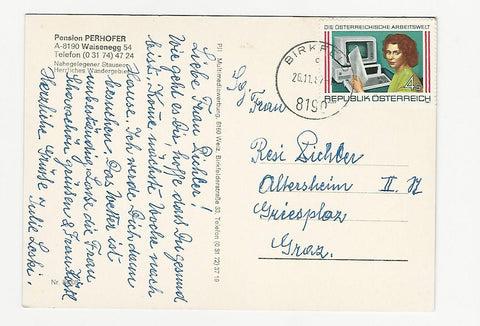 Pension PERHOFER
A-8190 Waisenegg 54
Telefon (0 31 74) 47 24
Nahegelegener Stausee
Herrliches Wandergebiet
Liebe Frau Pichler!
Wie geht es Dir, hoffe dass Du gesund
bist. Kome nächste Woche nach
Hause. Ich werde Dich dann
besuchen. Das Wetter ist
unbeständig. Lasse die Frau
grüssen & Frau
Herzliche Grüße
Nr.
PJI Multimediawerbung, 8160 Weiz, Birkfelderstraße 33, Telefon (0 31 72) 37 19
DIE ÖSTERREICHISCHE ARBEITSWELT
REPUBLIK ÖSTERREICH
BIRKF
8190
Sg. Frau
Resi Pichler
Altersheim II.
Griesplaz
Graz.